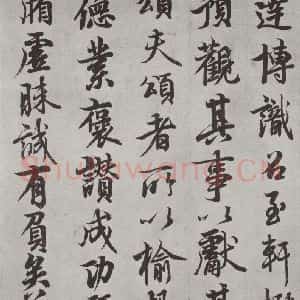 達博識召至軒
預觀其事以獻其
頌夫頌者所以揄
德業褒讚成功
虛昧誠有負矣
Shufawang.cn